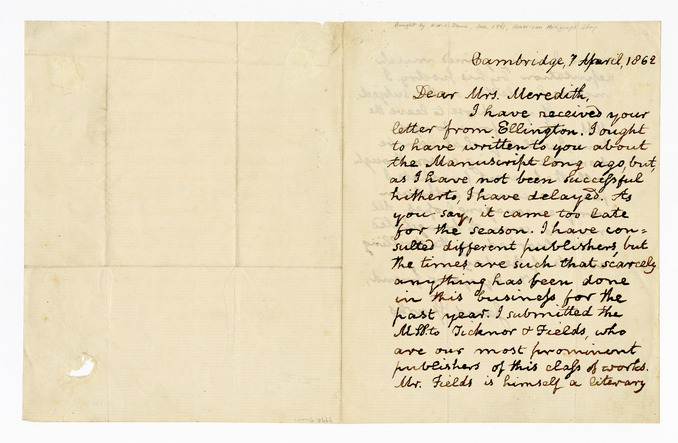 Cambridge, 7 April, 1862
Dear Mrs. Meredith,
I have received your
letter from Ellington. I ought
to have written to you about
the Manuscript long ago, but,
as I have not been successful
hitherto, I have delayed. As
you say, it came too late
for the season. I have con=
sulted different publishers, but
the times are such that scarcely
anything has been done
in this business for the
past year. I submitted the
MSS. to Ticknor & Fields, who
are our most prominent
publishers of this class of works.
Mr. Fields is himself a literary